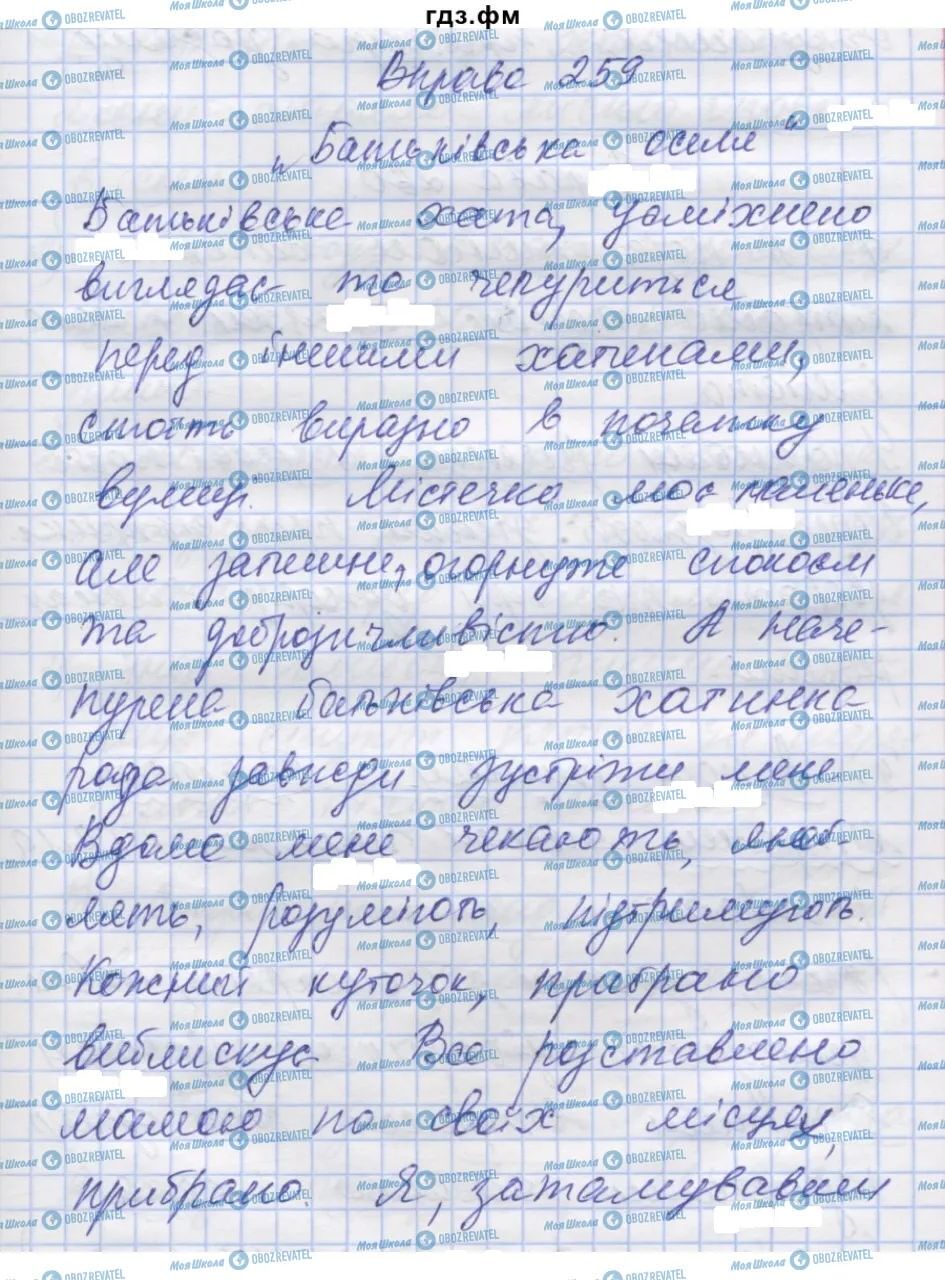 гдз.фм
Вправа 259
„Батьківська оселя"
Батьківська хата, усміхнено
виглядає та чепуриться
перед іншими хатинами,
стоїть виразно в початку
вулиці. Містечко моє маленьке,
але затишне, огорнуте спокоєм
та доброзичливістю. А наче-
пурена батьківська хатинка
рада завжди зустріти мене.
Вдома мене чекають, люб-
лять, розуміють, підтримують.
Кожний куточок, прибрано
виблискує. Все розставлено
мамою по своїх місцях,
прибрано. Я, затамувавши